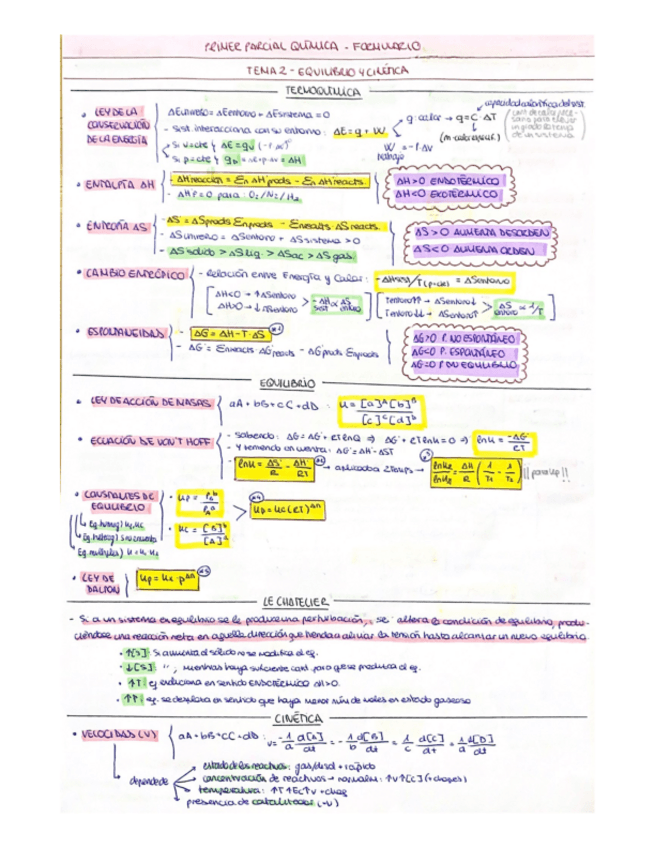 PRIMER PARCIAL QUÍMICA - FORMULARIO
TEMA 2 - EQUILIBRIO Y CINÉTICA
TERMOQUÍMICA
• LEY DE LA CONSERVACIÓN DE LA ENERGÍA
ΔEuniverso = ΔEentorno + ΔEsistema = 0
- Sist. interacciona con su entorno: ΔE = q + W
q: calor → q = C · ΔT
W = -P·ΔV
trabajo
Si v = cte y ΔE = qv
Si p = cte y qp = ΔE + P·ΔV = ΔH
• ENTALPÍA ΔH
- ΔHreacción = Σn ΔH°prods - Σn ΔH°reacts.
- ΔHf = 0 para: O2/N2/H2
ΔH > 0 ENDOTÉRMICO
ΔH < 0 EXOTÉRMICO
• ENTROPÍA ΔS
- ΔS = ΔSprods Σnprods - Σnreacts ΔSreacts.
- ΔSuniverso = ΔSentorno + ΔSsistema > 0
- ΔSsólido > ΔSliq. > ΔSac > ΔSgas
ΔS > 0 AUMENTA DESORDEN
ΔS < 0 AUMENTA ORDEN
• CAMBIO ENTRÓPICO
- Relación entre Energía y Calor: - ΔHsist/T (p=cte) = ΔSentorno
ΔH<0 → ↑ΔSentorno
ΔH>0 → ↓ΔSentorno
Tentorno↑↑ → ΔSentorno↓
Tentorno↓↓ → ΔSentorno↑
• ESPONTANEIDAD
- ΔG = ΔH - T · ΔS
- ΔG = Σnreacts ΔG°reacts - ΔG°prods Σnprods
ΔG>0 P. NO ESPONTÁNEO
ΔG<0 P. ESPONTÁNEO
ΔG=0 P EN EQUILIBRIO
EQUILIBRIO
• LEY DE ACCIÓN DE MASAS
aA + bB ⇌ cC + dD : K = [a]^A [b]^B / [c]^C [d]^b
• ECUACIÓN DE VON'T HOFF
- Sabiendo: ΔG = ΔG° + RT lnQ ⇒ ΔG° + RT lnK = 0 ⇒ lnK = -ΔG°/RT
- Y teniendo en cuenta: ΔG° = ΔH° - ΔST
- lnK = ΔS°/R - ΔH°/RT → aplicado a 2 temps → lnK2/lnK1 = ΔH/R (1/T1 - 1/T2)
• CONSTANTES DE EQUILIBRIO
• Kp = PB^b / PA^a
• Kc = [B]^b / [A]^a
Kp = Kc (RT)^Δn
Eq. homog) Kp, Kc
Eq. heterog) S no cuenta
Eq. múltiples) K = K1 K2
• LEY DE DALTON
Kp = Kx · p^Δn
LE CHATELIER
- Si a un sistema en equilibrio se le produce una perturbación, se altera la condición de equilibrio, produ-
ciéndose una reacción neta en aquella dirección que tienda a aliviar la tensión hasta alcanzar un nuevo equilibrio.
• ↑[S]: Si aumenta el sólido no se modifica el eq.
• ↓[S]: ", mientras haya suficiente cant. para que se produzca el eq.
• ↑T: eq evoluciona en sentido ENDOTÉRMICO ΔH>0.
• ↑P: eq. se desplaza en sentido que haya menor núm de moles en estado gaseoso
CINÉTICA
• VELOCIDAD (V)
aA + bB ⇌ cC + dD : v = -1/a d[A]/dt = -1/b d[B]/dt = 1/c d[C]/dt = 1/d [D]/dt
depende de
estado de los reactivos: gas/disol + rápido
concentración de reactivos → normalm: ↑v ↑[c] (+choques)
temperatura: ↑T ↑Ec ↑v +choq
presencia de catalizador (→v)